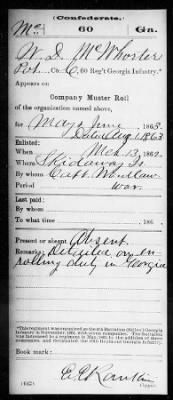 (Confederate.)
Mc 60 Ga.
W. D. McWhorter
Pvt., Co. C, 60 Reg't Georgia Infantry.*
Appears on
Company Muster Roll
of the organization named above,
for May & June, 1863.
Dated Aug 1 1863
Enlisted:
When Mch 13, 1862.
Where Skidaway Is.
By whom Capt.
Period war
Last paid:
By whom
To what time , 186 .
Present or absent Absent
Remarks: Detailed on En-
rolling duty in Georgia
Book mark:
E. E. Rankin
Copyist.